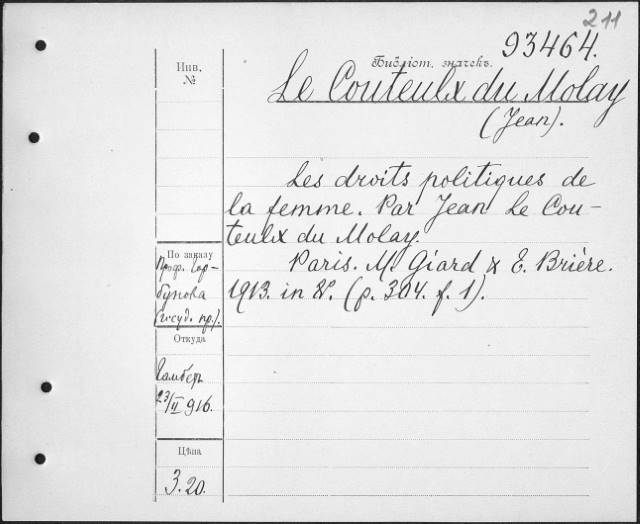 211
93464.
Библіот. значекъ.
Le Couteulx du Molay
(Jean).
Инв.
№
Les droits politiques de
la femme. Par Jean Le Cou-
teulx du Molay.
Paris. M. Giard & E. Brière.
1913. in 8°. (p. 304. f. 1).
По заказу
Проф. Гор-
бунова
(госуд. пр.).
Откуда
Гамбер
23/II 916.
Цѣна
3.20.